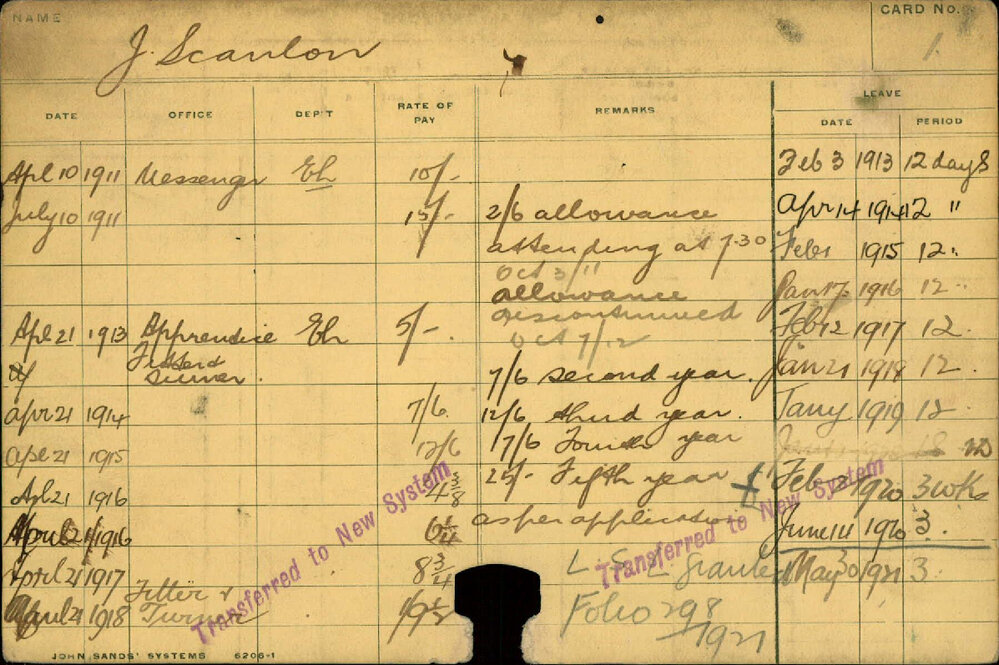 NAME CARD NO.
J. Scanlon 1
DATE OFFICE DEP'T RATE OF PAY REMARKS LEAVE
DATE PERIOD
Feb 3 1913 12 days
Apl 10 1911 Messenger 10/-
July 10 1911 2/6 allowance Apr 14 1914 12 "
attending at 7.30 Feb 1 1915 12 "
Oct 3/11
allowance Jan 17 1916 12 "
discontinued
Oct 7/12
Apl 21 1913 Apprentice 5/- Feb 12 1917 12 "
Fitter &
Turner. 7/6 second year. Jan 21 1918 12 "
Apr 21 1914 7/6 12/6 third year. Jany 1919 12 "
Apl 21 1915 12/6 17/6 Fourth year
Apl 21 1916 4 3/8 25/- Fifth year + Feb 1920 3 wks
April 21/1916 as per application June 14 1920 3
April 21 1917 8 3/4 L S L Granted May 30 1921 3
April 21 1918 Fitter & Turner Folio 298
/1921
Transferred to New System
Transferred to New System
JOHN SANDS' SYSTEMS 6206-1